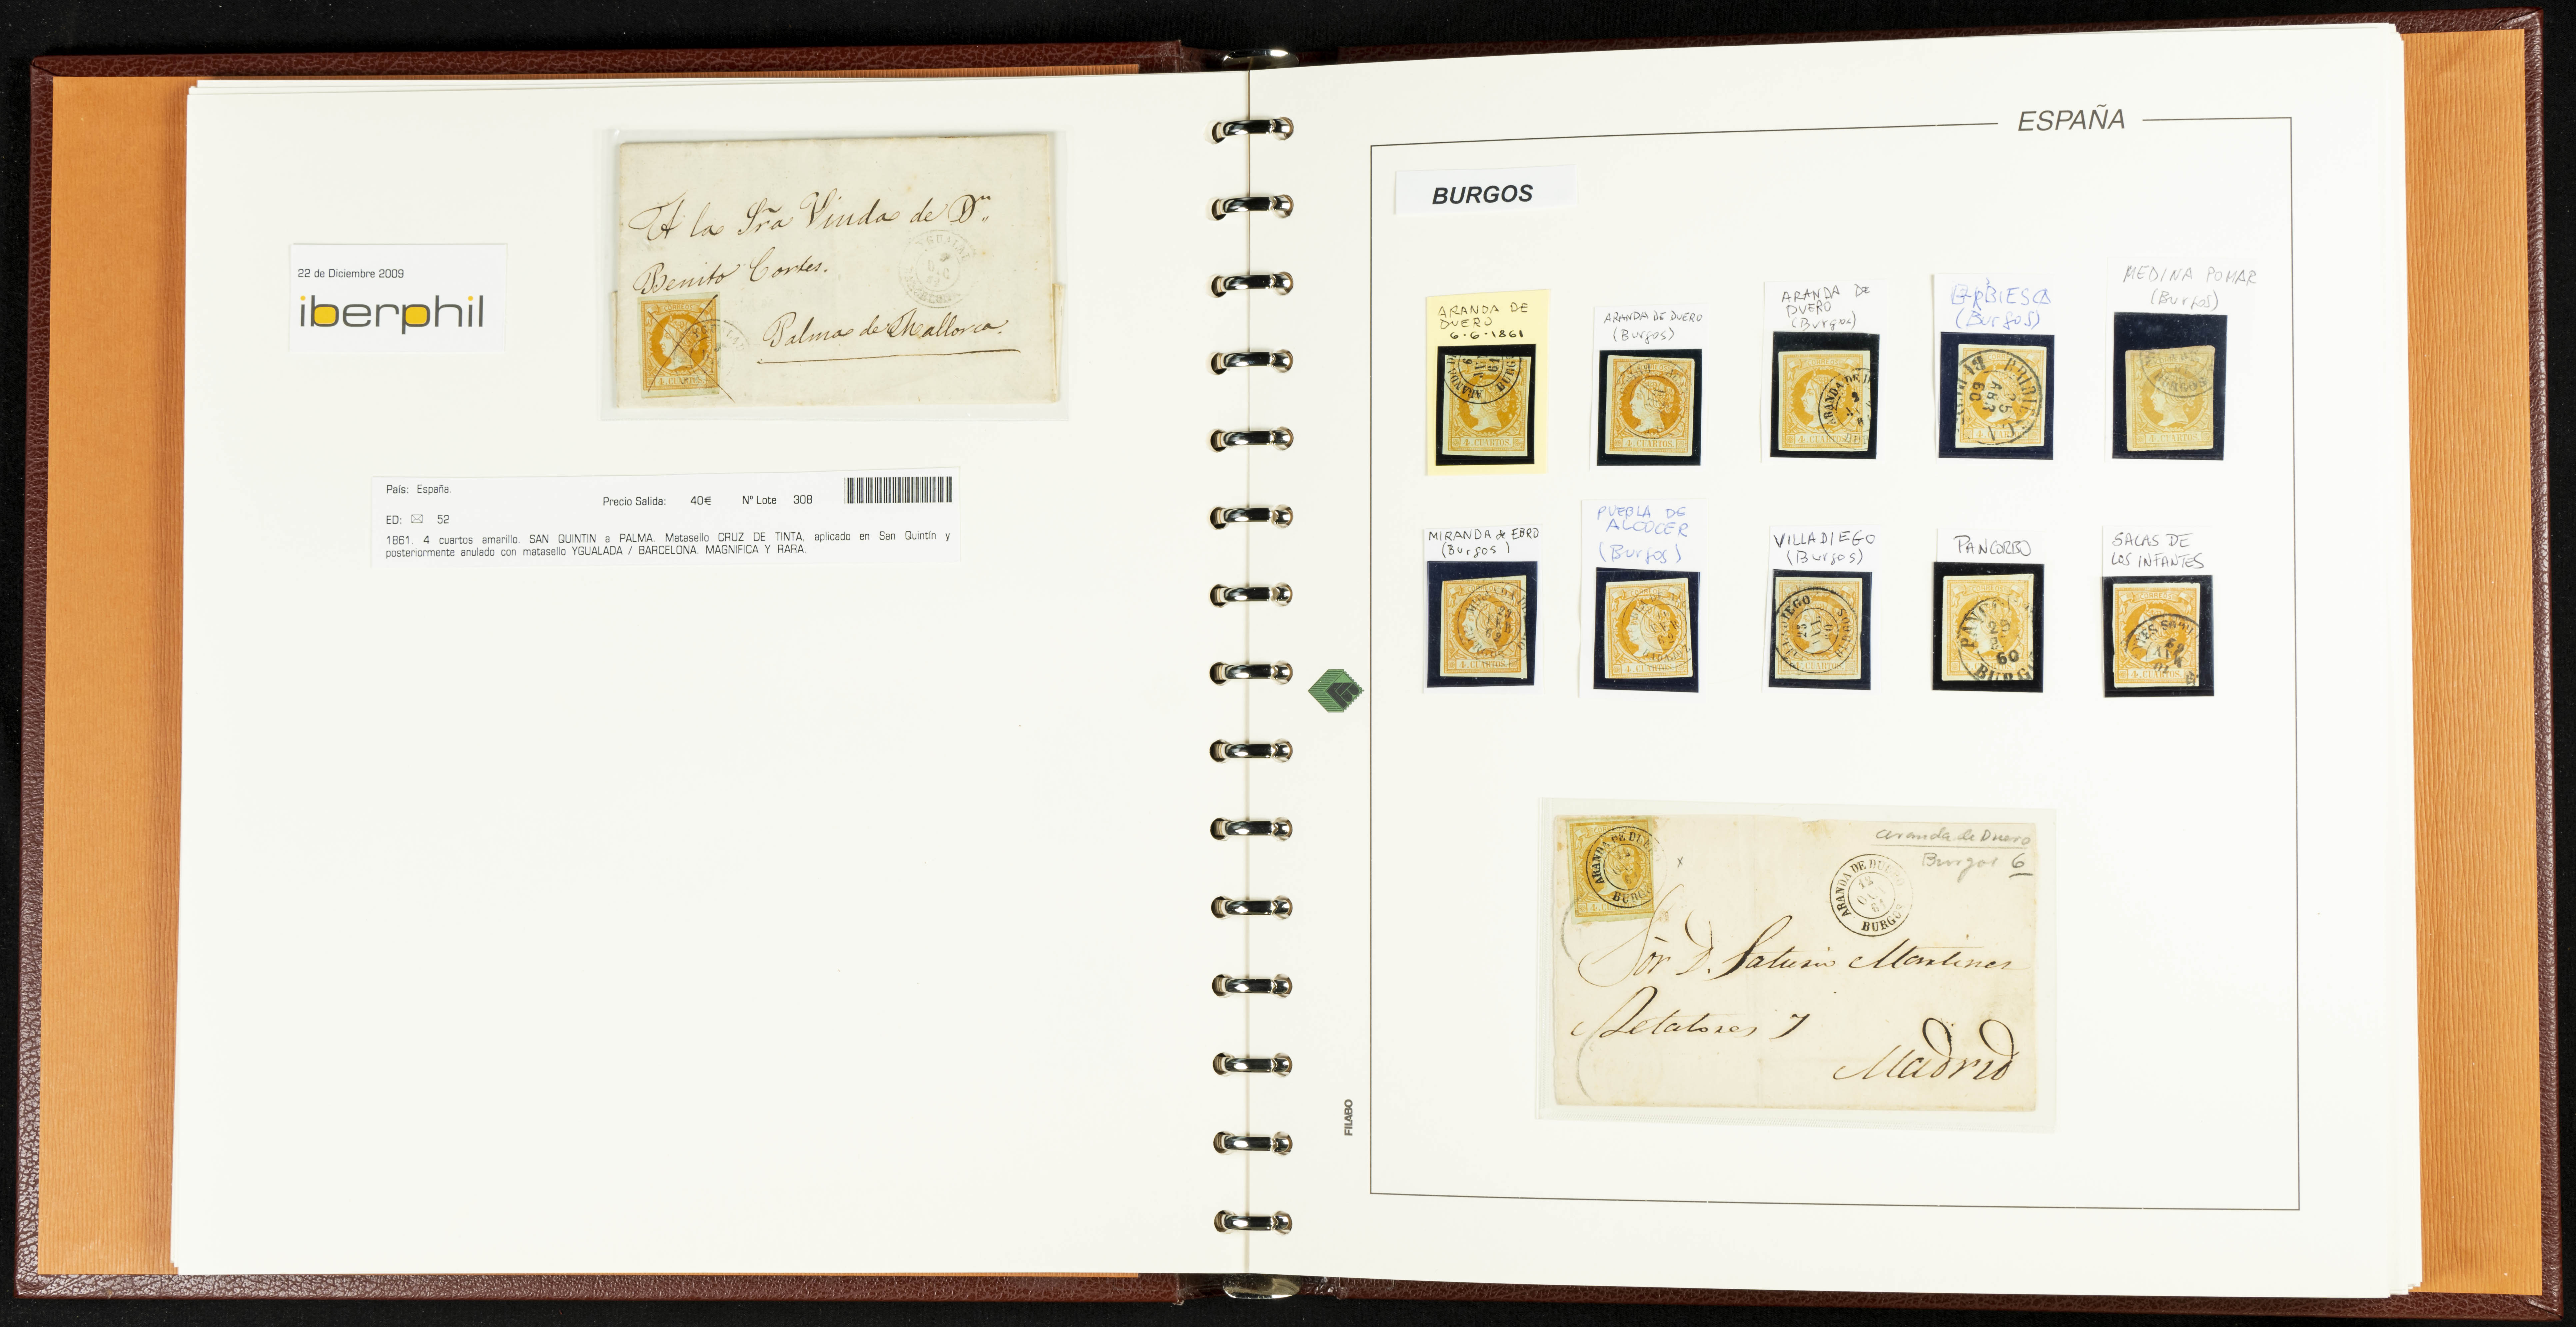 22 de Diciembre 2009
iberphil
A la Sra Viuda de Dn.
Benito Cortes.
Palma de Mallorca.
CORREOS
4 CUARTOS
País: España.
Precio Salida: 40€ Nº Lote 308
ED: 52
1861. 4 cuartos amarillo. SAN QUINTIN a PALMA. Matasello CRUZ DE TINTA, aplicado en San Quintín y
posteriormente anulado con matasello YGUALADA / BARCELONA. MAGNIFICA Y RARA.
ESPAÑA
BURGOS
ARANDA DE
DUERO
6-6-1861
ARANDA DE DUERO
(Burgos)
ARANDA DE
DUERO
(Burgos)
(Burgos)
MEDINA POMAR
(Burgos)
BURGOS
4 CUARTOS.
4 CUARTOS.
4 CUARTOS.
MIRANDA de EBRO
(Burgos)
PUEBLA DE
ALCOCER
(Burgos)
VILLADIEGO
(Burgos)
PANCORBO
SALAS DE
LOS INFANTES
4 CUARTOS.
4 CUARTOS.
4 CUARTOS.
60
4 CUARTOS.
ARANDA DE DUERO
BURGOS
Aranda de Duero
Burgos 6
ARANDA DE DUERO
12
OCT
61
BURGOS
Sor D. Saturio Martinez
Relatores 7
Madrid
FILABO